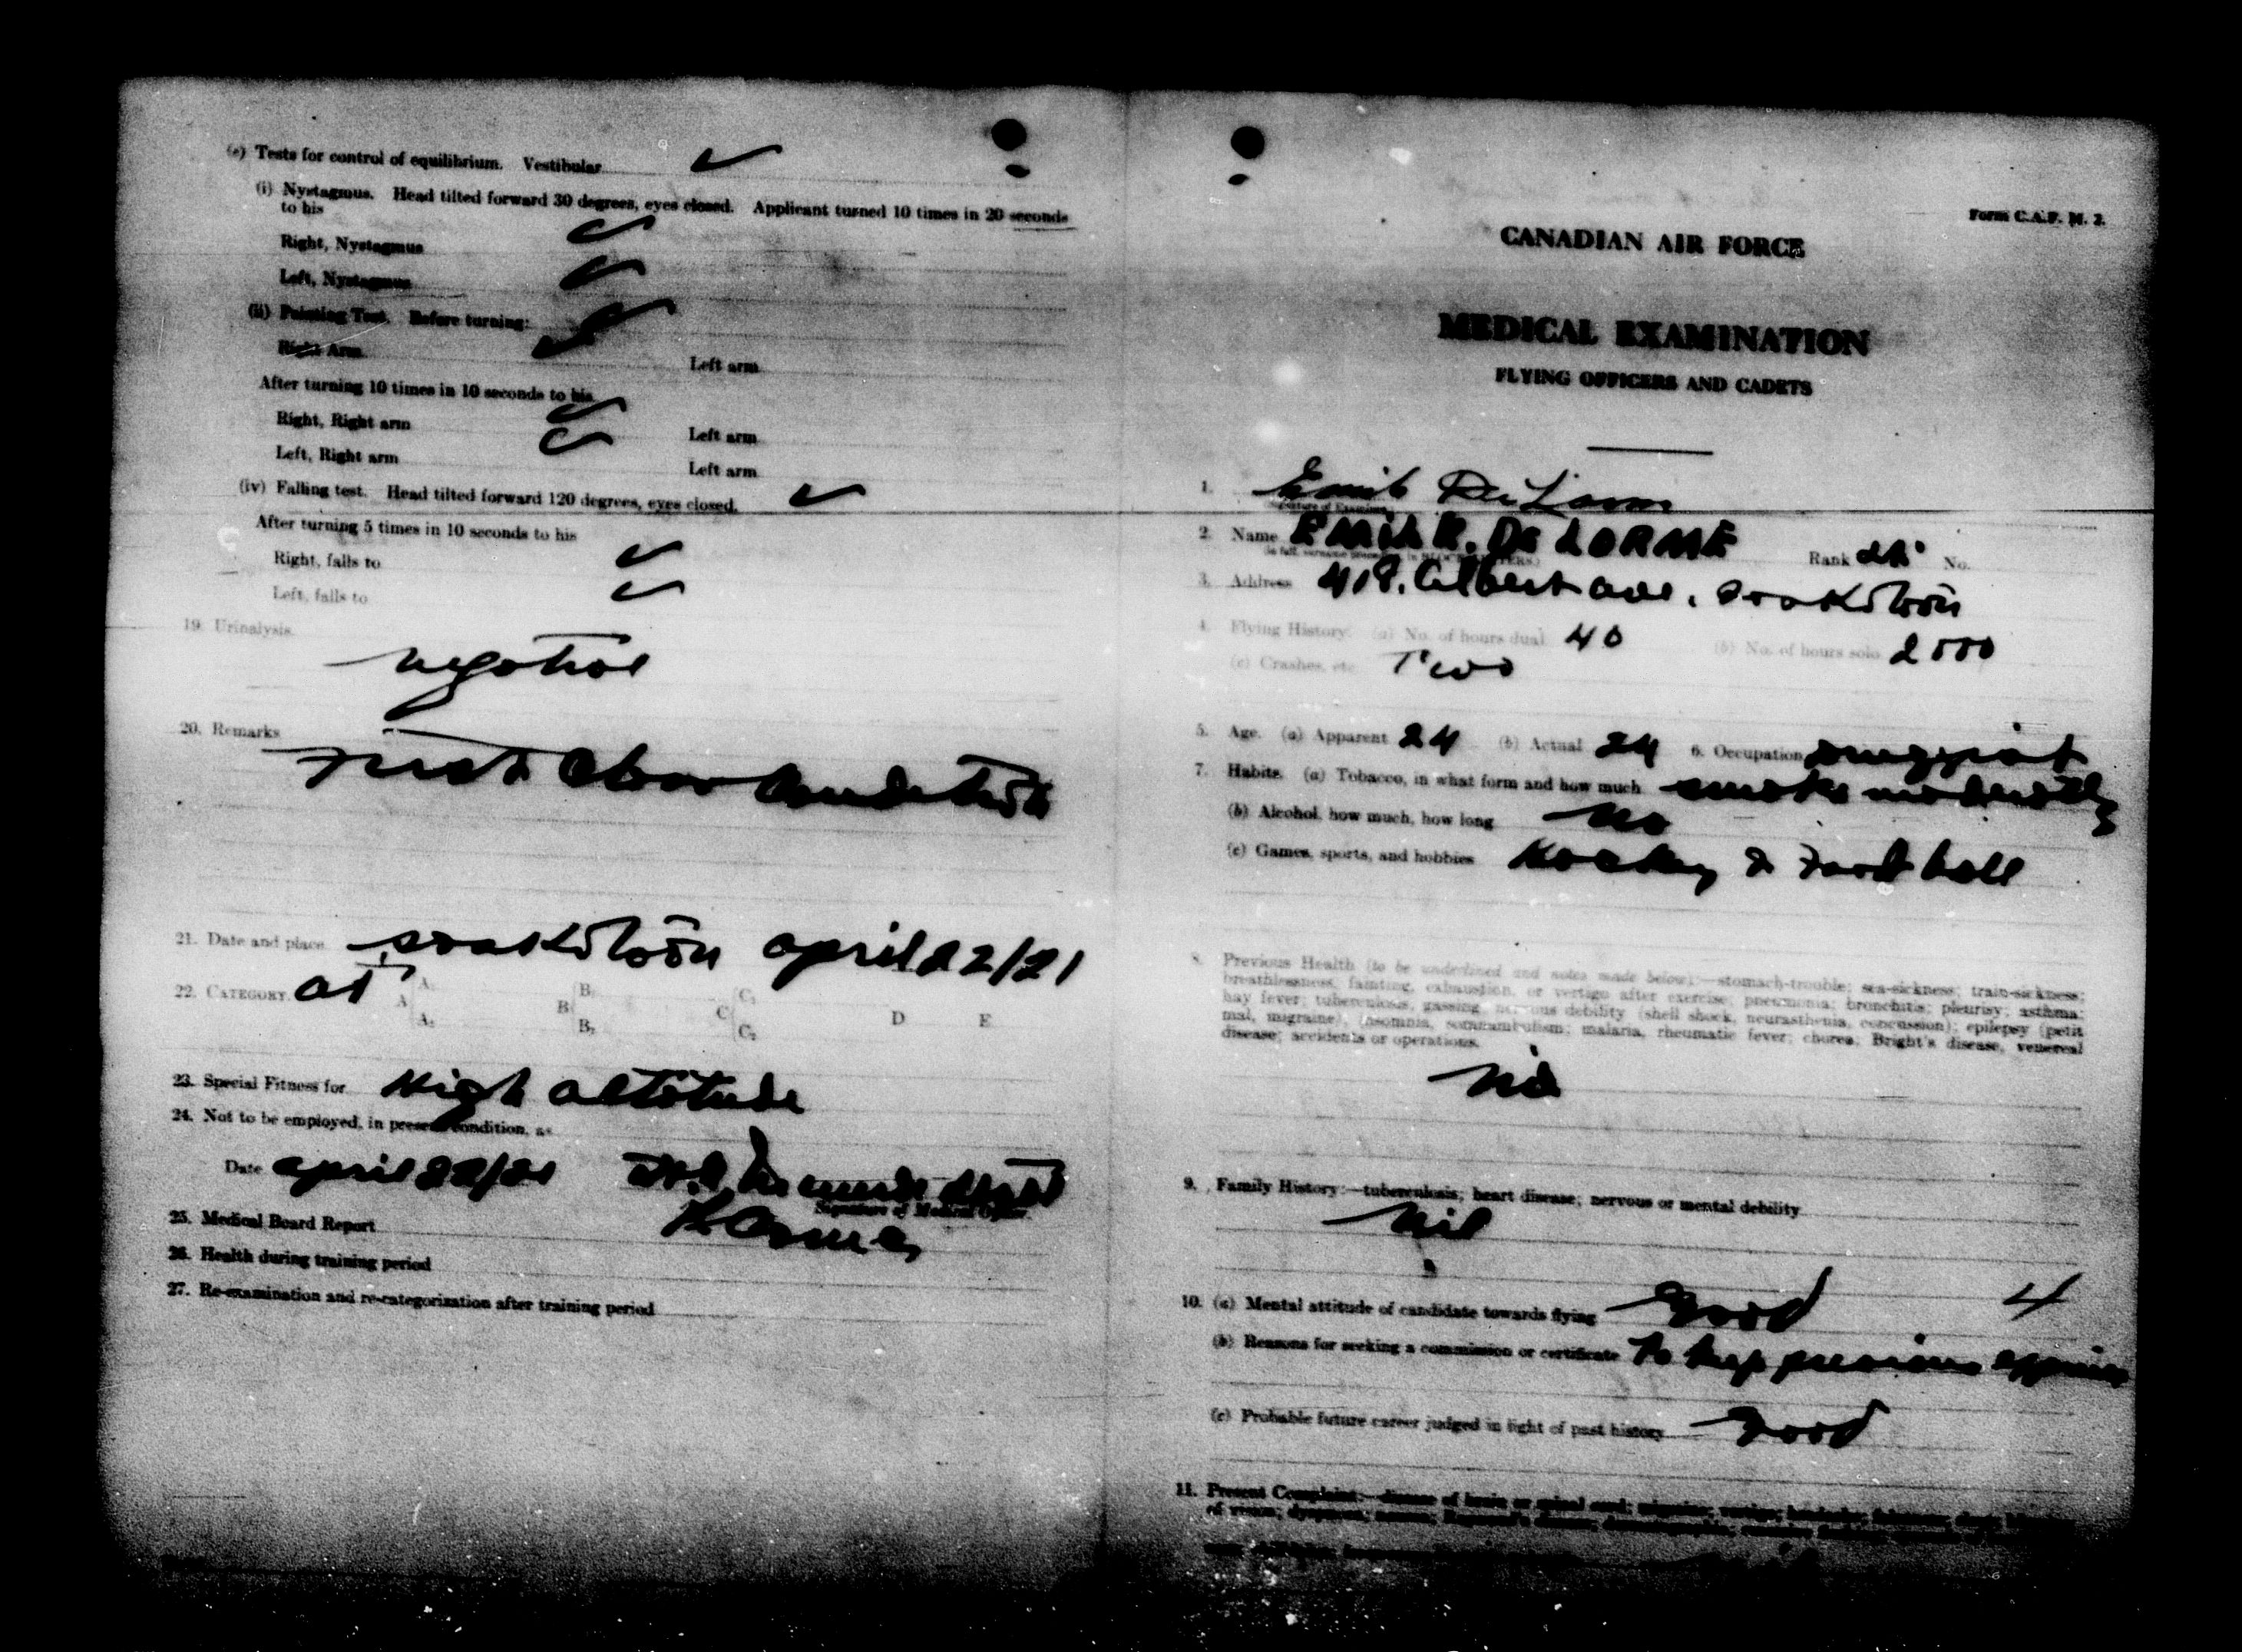 (e) Tests for control of equilibrium. Vestibular ✓
(i) Nystagmus. Head tilted forward 30 degrees, eyes closed. Applicant turned 10 times in 20 seconds
to his
Right, Nystagmus ✓
Left, Nystagmus ✓
(ii) Pointing Test. Before turning: ✓
Right Arm ✓ Left arm
After turning 10 times in 10 seconds to his
Right, Right arm ✓ Left arm
Left, Right arm ✓ Left arm
(iv) Falling test. Head tilted forward 120 degrees, eyes closed. ✓
After turning 5 times in 10 seconds to his
Right, falls to ✓
Left, falls to ✓
19. Urinalysis
negative
20. Remarks
First Class Condition
21. Date and place Saskatoon April 22/21
22. CATEGORY A A₁ A₂ B B₁ B₂ C C₁ C₂ D E
23. Special Fitness for High altitude
24. Not to be employed, in present condition, as
Date April 22/21
Signature of Medical Officer.
25. Medical Board Report
26. Health during training period
27. Re-examination and re-categorization after training period
Form C.A.F. M. 2.
CANADIAN AIR FORCE
MEDICAL EXAMINATION
FLYING OFFICERS AND CADETS
1. Emile DeLorme
Signature of Examinee
2. Name EMILE R. DE LORME Rank No.
3. Address 418. Albert ave. Saskatoon
4. Flying History: (a) No. of hours dual 40 (b) No. of hours solo 2000
(c) Crashes, etc. Two
5. Age. (a) Apparent 24 (b) Actual 24 6. Occupation Druggist
7. Habits. (a) Tobacco, in what form and how much smoke moderately
(b) Alcohol, how much, how long No
(c) Games, sports, and hobbies Hockey & Foot ball
8. Previous Health (to be underlined and notes made below):—stomach-trouble; sea-sickness; train-sickness;
breathlessness, fainting, exhaustion, or vertigo after exercise; pneumonia; bronchitis; pleurisy; asthma;
hay fever; tuberculosis, gassing, nervous debility (shell shock, neurasthenia, concussion); epilepsy (petit
mal, migraine), insomnia, somnambulism; malaria, rheumatic fever; chorea; Bright's disease, venereal
disease; accidents or operations.
Nil
9. Family History:—tuberculosis; heart disease; nervous or mental debility
Nil
10. (a) Mental attitude of candidate towards flying Good 4
(b) Reasons for seeking a commission or certificate To keep previous
(c) Probable future career judged in light of past history Good
11. Present Complaint:—disease of brain or spinal cord; migraine; vertigo; headache;